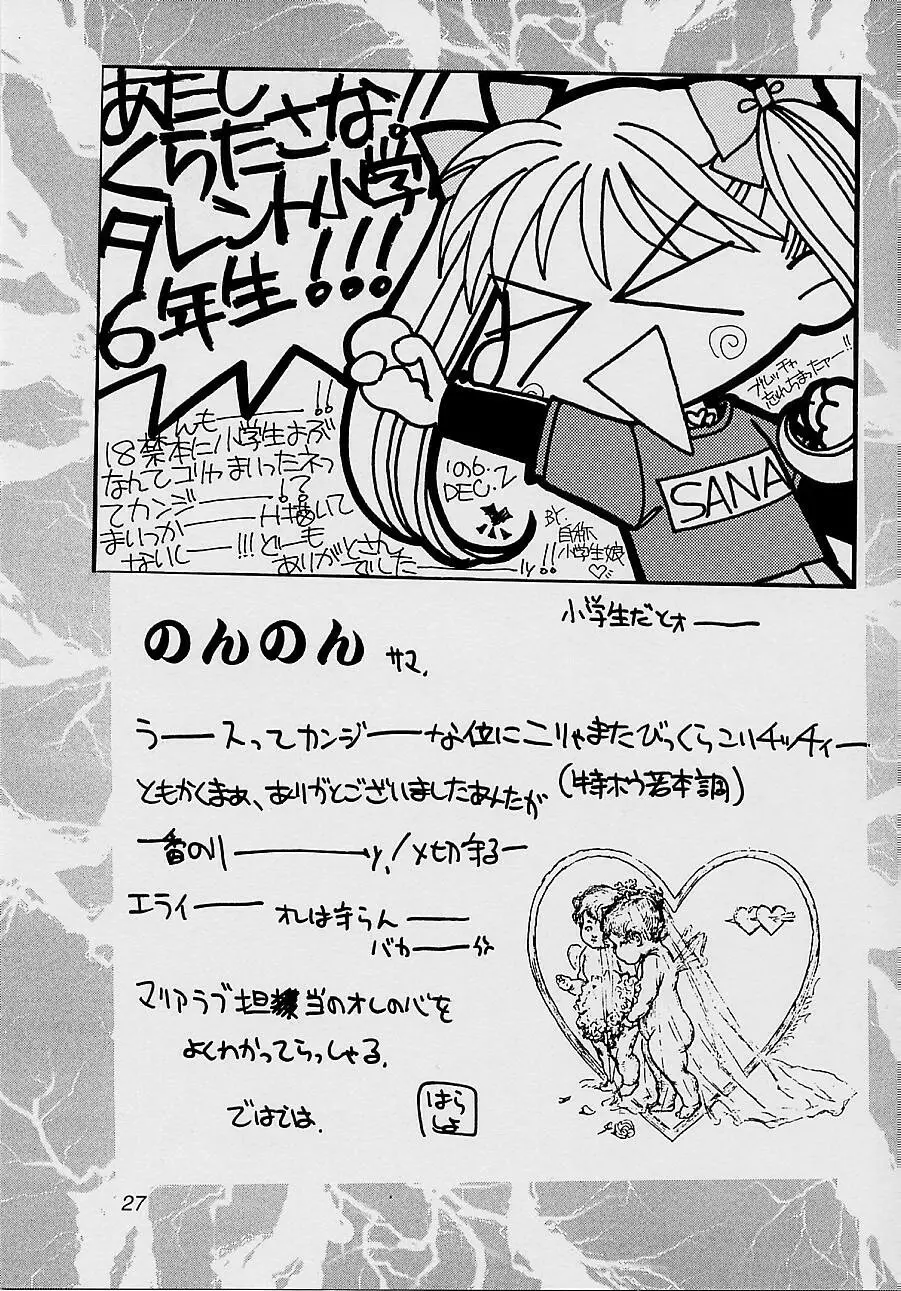 あたし
くらたさな!!
タレント小学
6年生!!!
ブレッチャ
忘れちまったァー!!
SANA
んもー!!
18禁本に小学生まぶ
なんてゴリャまいったネっ
てカンジー!?
まいっかー H描いて
ないしー!!! どーも
ありがとさん
でしたーッ!!
'96.
DEC.2
BY
自称
小学生娘♡
!!
小学生だとォー
のんのん サマ.
うースってカンジーな位にこりゃまたびっくらこいチッチィー
ともかくまぁ、ありがとございましたあんたが(特ボウ若本調)
一番のりーッ!〆切守るー
エライー オレは守らんー
バカーッ
マリアラブ担当のオレの心を
よくわかってらっしゃる.
ではでは.
はら
しょ
27